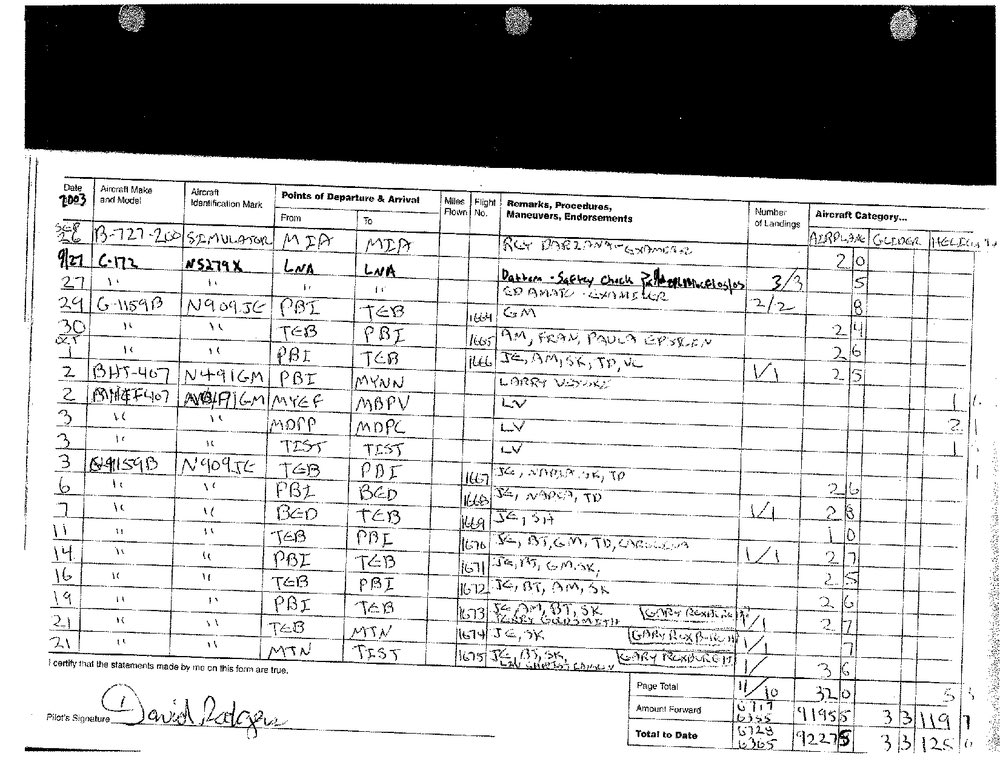 Date 2003 Aircraft Make and Model Aircraft Identification Mark Points of Departure & Arrival From To Miles Flown Flight No. Remarks, Procedures, Maneuvers, Endorsements Number of Landings Aircraft Category... AIRPLANE GLIDER
26 B-727-200 SIMULATOR MIA MIA 2 0
9/27 C-172 N5279X LNA LNA Pattern - Saftey Check 3/3 5
27 " " " " ED AMATO - EXAMINER 2/2 8
29 G-1159B N909JE PBI TEB 1664 GM 2 4
30 " " TEB PBI 1665 AM, FRAN, PAULA EPSTEIN 2 6
OCT 1 " " PBI TEB 1666 JE, AM, SK, TD, VC 1/1 2 5
2 BHT-407 N491GM PBI MYNN LARRY VISOSKI 1
2 407 GM MYEF MBPV LV 2
3 " " MDPP MDPC LV 1
3 " " TIST TIST LV
3 G-1159B N909JE TEB PBI 1667 JE, NADIA, SK, TD 2 6
6 " " PBI BED 1668 JE, NADIA, TD 1/1 2 8
7 " " BED TEB 1669 JE, SK 1 0
11 " " TEB PBI 1670 JE, BT, GM, TD, 1/1 2 7
14 " " PBI TEB 1671 JE, BT, GM, SK, 2 5
16 " " TEB PBI 1672 JE, BT, AM, SK 2 6
19 " " PBI TEB 1673 JE, AM, BT, SK GARY ROXBURGH 1/1 2 7
GOLDSMITH
21 " " TEB MTN 1674 JE, SK GARY ROXBURGH 1/1 7
21 " " MTN TIST 1675 JE, BT, SK, GARY ROXBURGH 1/ 3 6
I certify that the statements made by me on this form are true.
Page Total 11/10 32 0 5
Amount Forward 6717 6355 9195 5 3 3 119 7
Pilot's Signature David Rodgers
Total to Date 6728 6365 9227 5 3 3 125